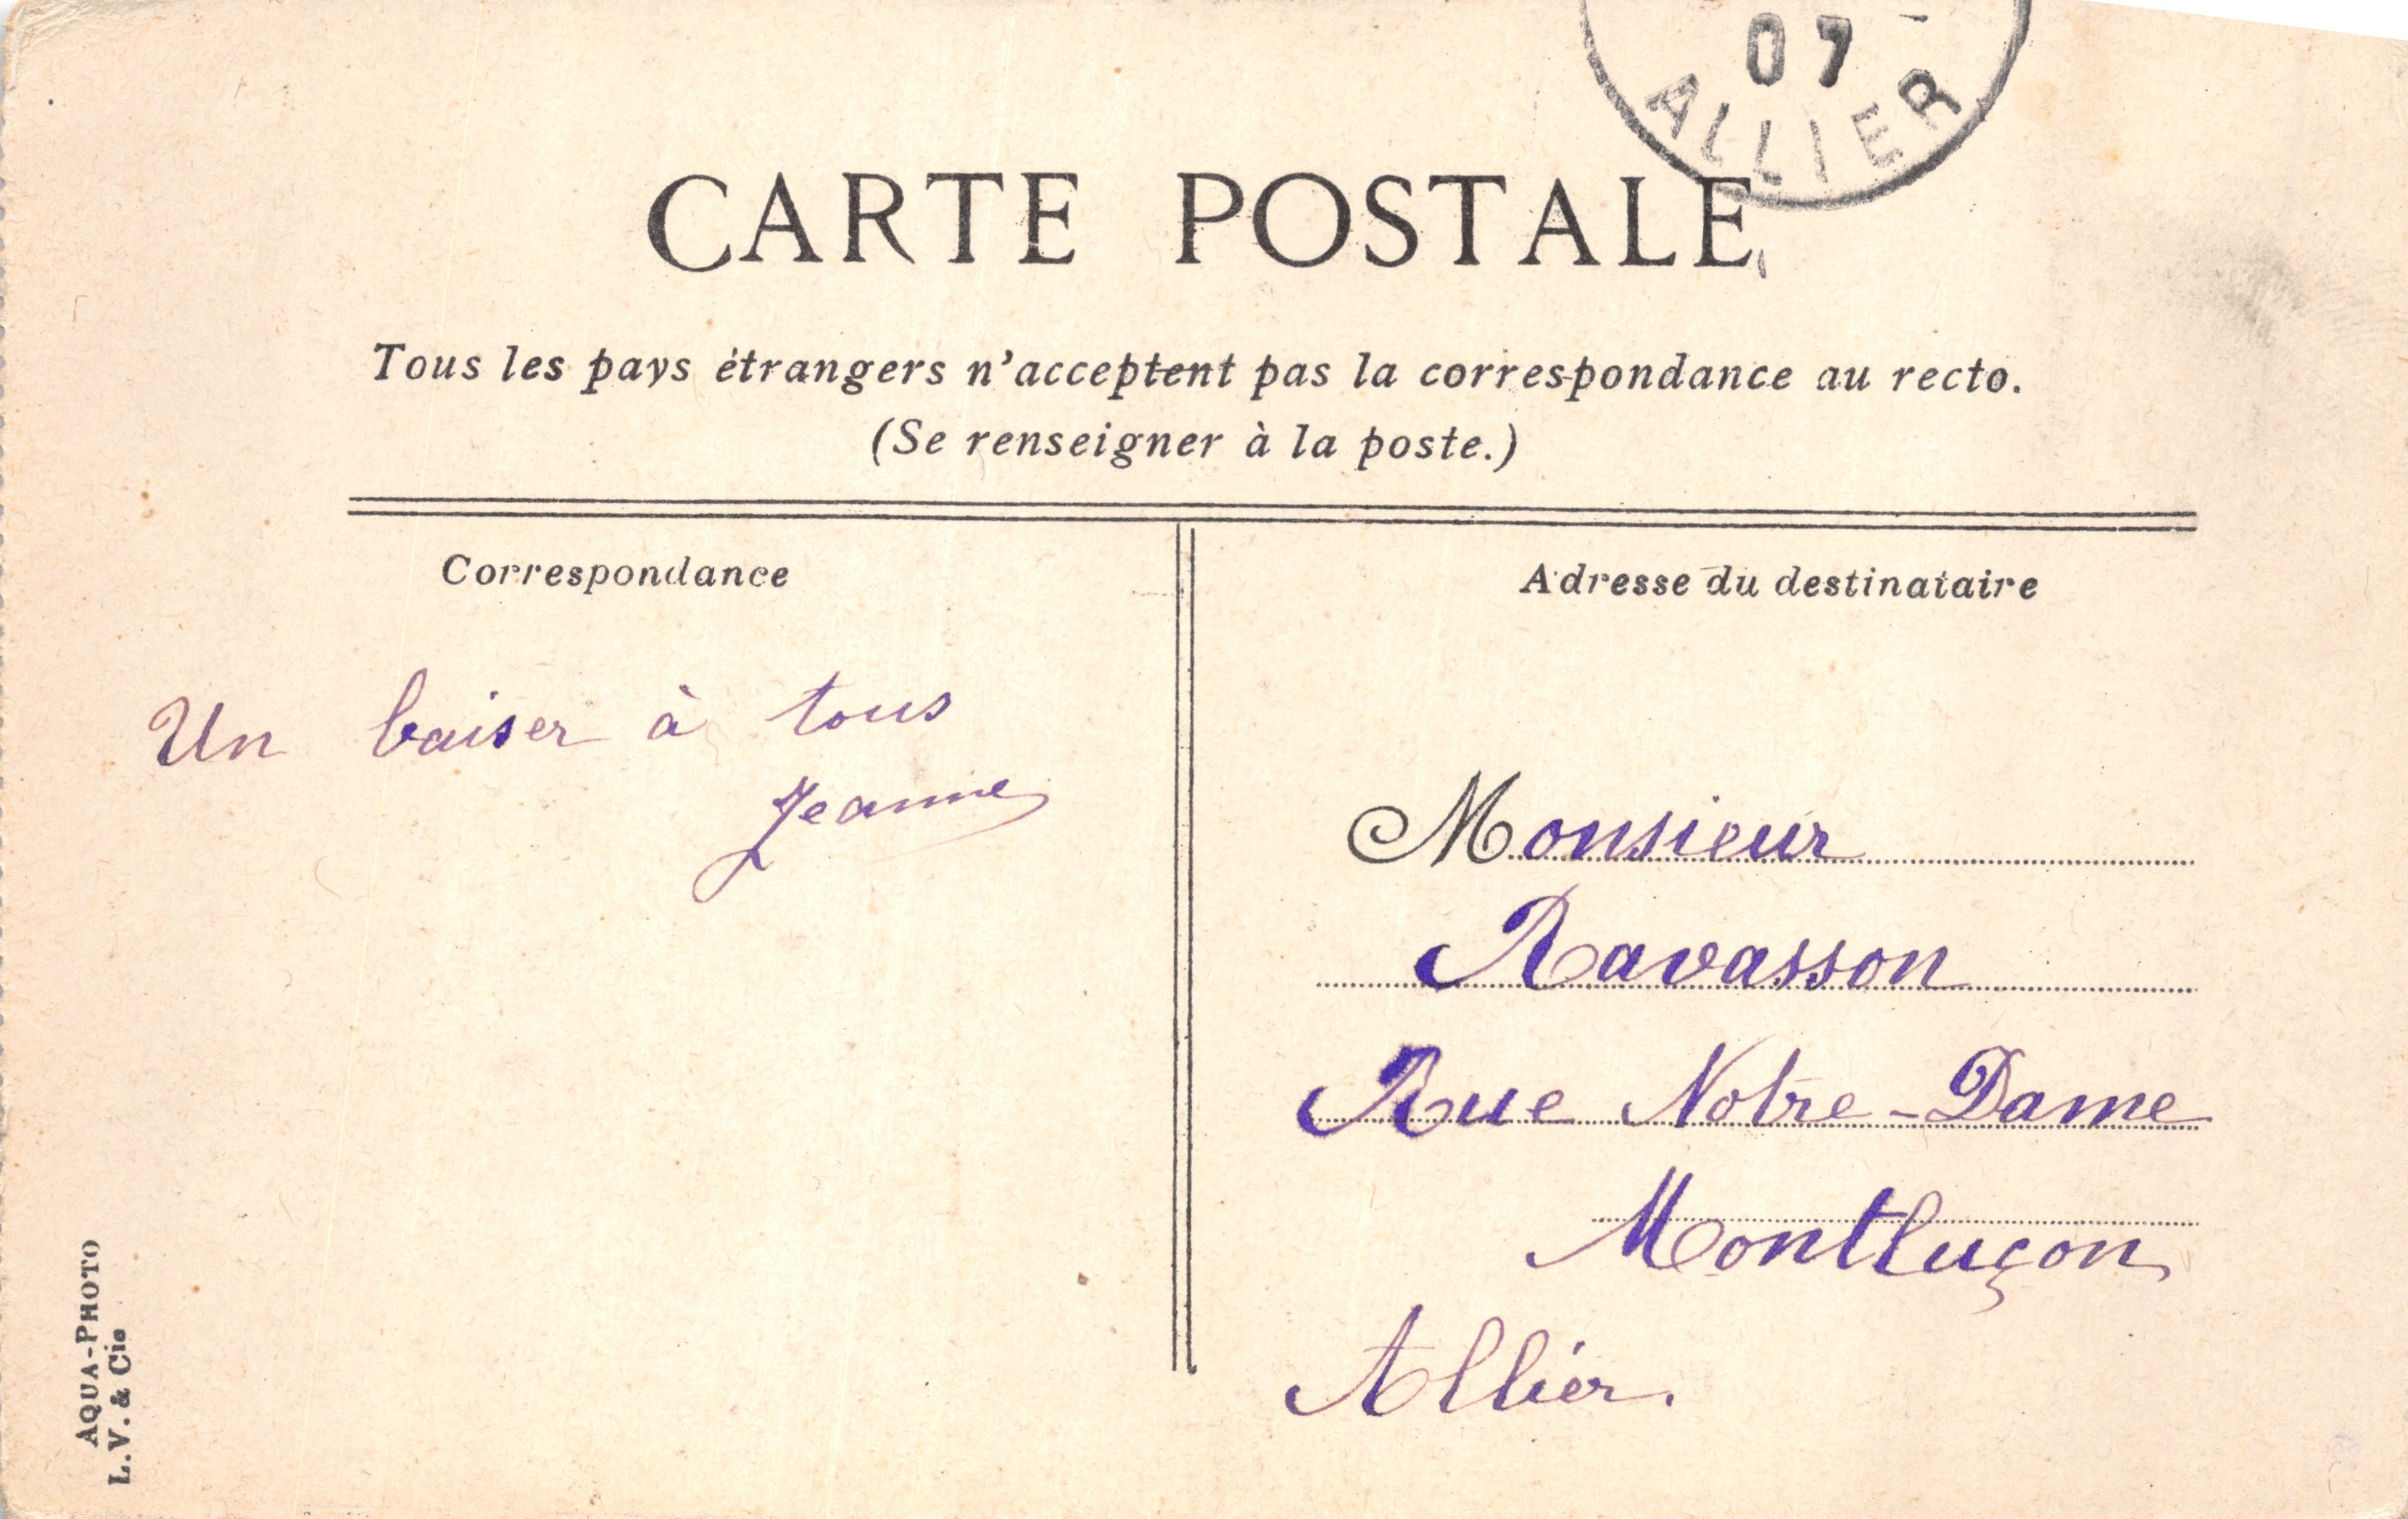 07
ALLIER
CARTE POSTALE
Tous les pays étrangers n'acceptent pas la correspondance au recto.
(Se renseigner à la poste.)
Correspondance
Un baiser à tous
Jeanne
Adresse du destinataire
Monsieur
Ravasson
Rue Notre-Dame
Montluçon
Allier.
AQUA-PHOTO
L. V. & Cie